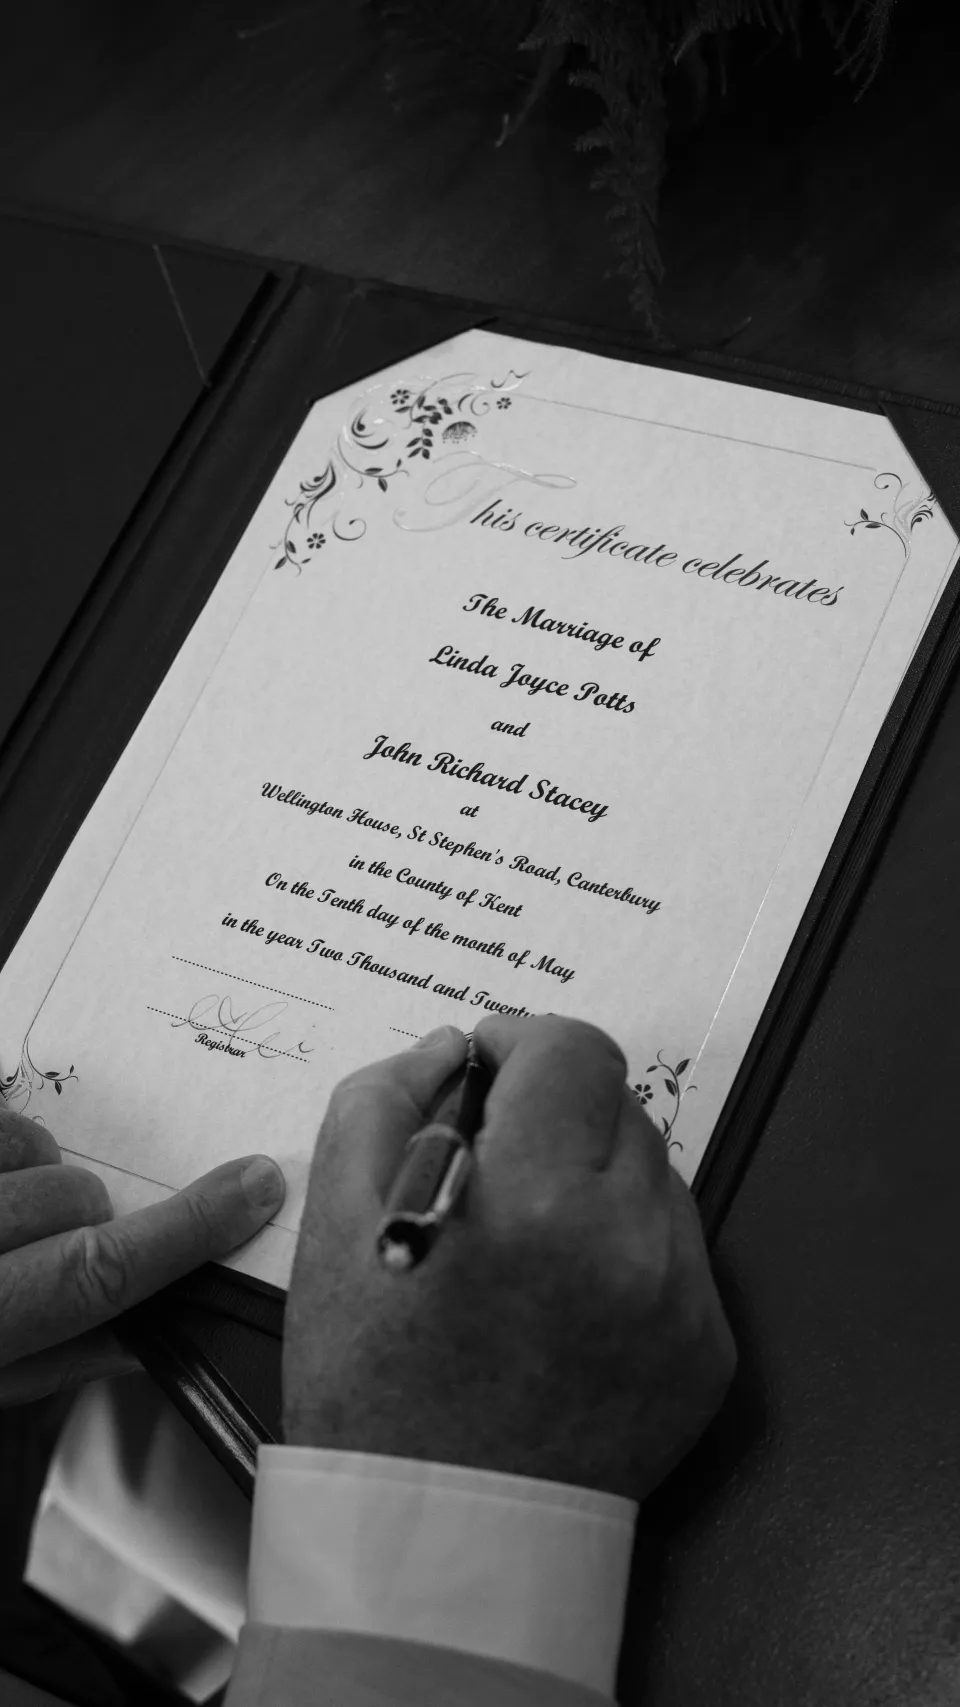 This certificate celebrates
The Marriage of
Linda Joyce Potts
and
John Richard Stacey
at
Wellington House, St Stephen's Road, Canterbury
in the County of Kent
On the Tenth day of the month of May
in the year Two Thousand and Twenty
Registrar